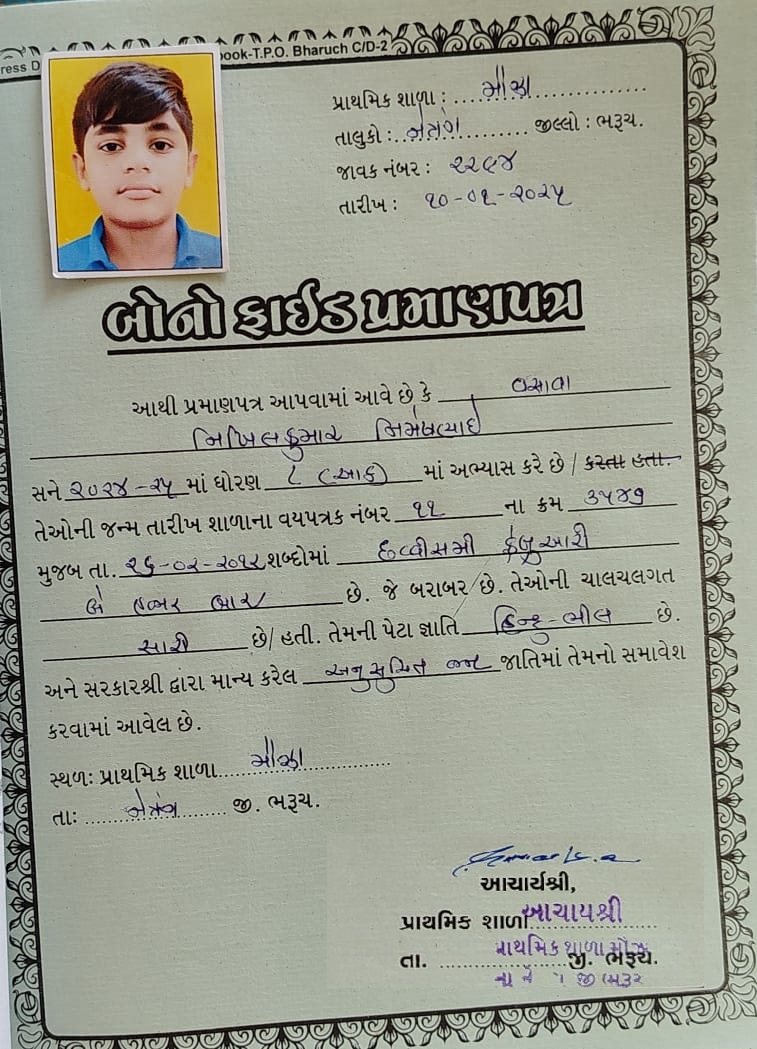 ress D ook-T.P.O. Bharuch C/D-2
પ્રાથમિક શાળા : મૌઝા
તાલુકો : નેત્રંગ જીલ્લો : ભરૂચ.
જાવક નંબર : ૨૨૯૪
તારીખ : ૧૦-૦૧-૨૦૨૫
બોનો ફાઈડ પ્રમાણપત્ર
આથી પ્રમાણપત્ર આપવામાં આવે છે કે વસાવા
નિખિલકુમાર
સને ૨૦૨૪-૨૫ માં ધોરણ ૮ (આઠ) માં અભ્યાસ કરે છે / કરતા હતા.
તેઓની જન્મ તારીખ શાળાના વયપત્રક નંબર ૧૧ ના ક્રમ ૩૫૪૭
મુજબ તા. ૨૬-૦૨-૨૦૧૨ શબ્દોમાં છવ્વીસમી ફેબ્રુઆરી
બે હજાર બાર છે. જે બરાબર છે. તેઓની ચાલચલગત
સારી છે/ હતી. તેમની પેટા જ્ઞાતિ હિન્દુ-ભીલ છે.
અને સરકારશ્રી દ્વારા માન્ય કરેલ અનુસુચિત જન જાતિમાં તેમનો સમાવેશ
કરવામાં આવેલ છે.
સ્થળ: પ્રાથમિક શાળા મૌઝા
તા: નેત્રંગ જી. ભરૂચ.
આચાર્યશ્રી,
પ્રાથમિક શાળા આચાર્યશ્રી
તા. જી. ભરૂચ.
પ્રાથમિક શાળા મૌઝા
જી ભરૂચ